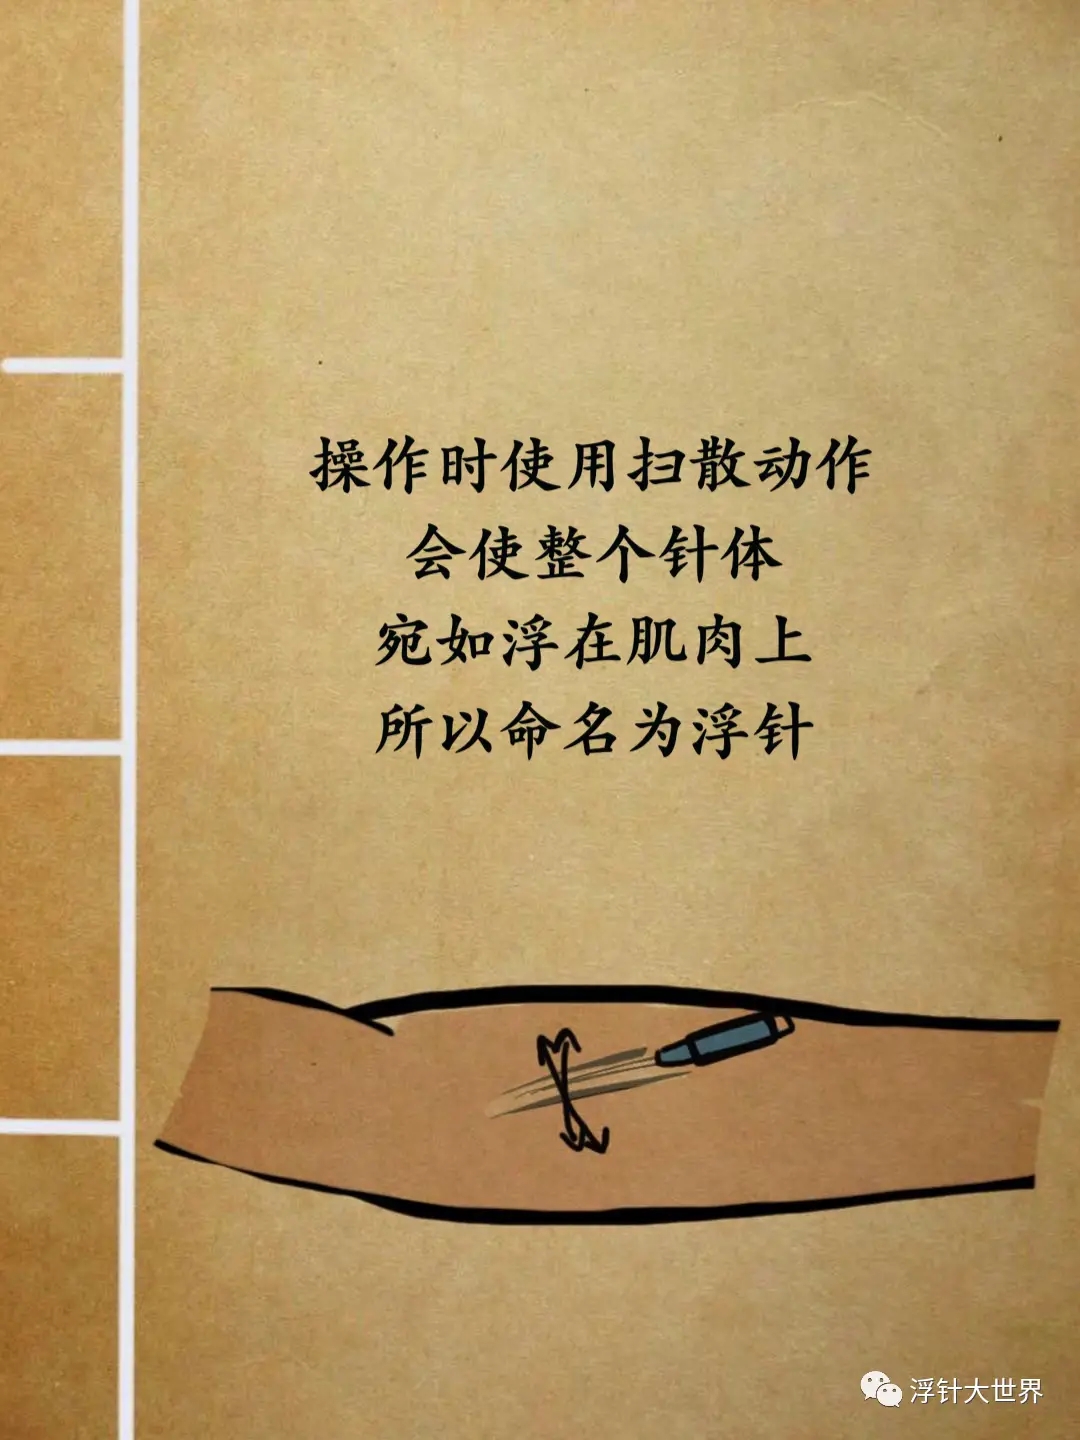 操作时使用扫散动作
会使整个针体
宛如浮在肌肉上
所以命名为浮针
浮针大世界